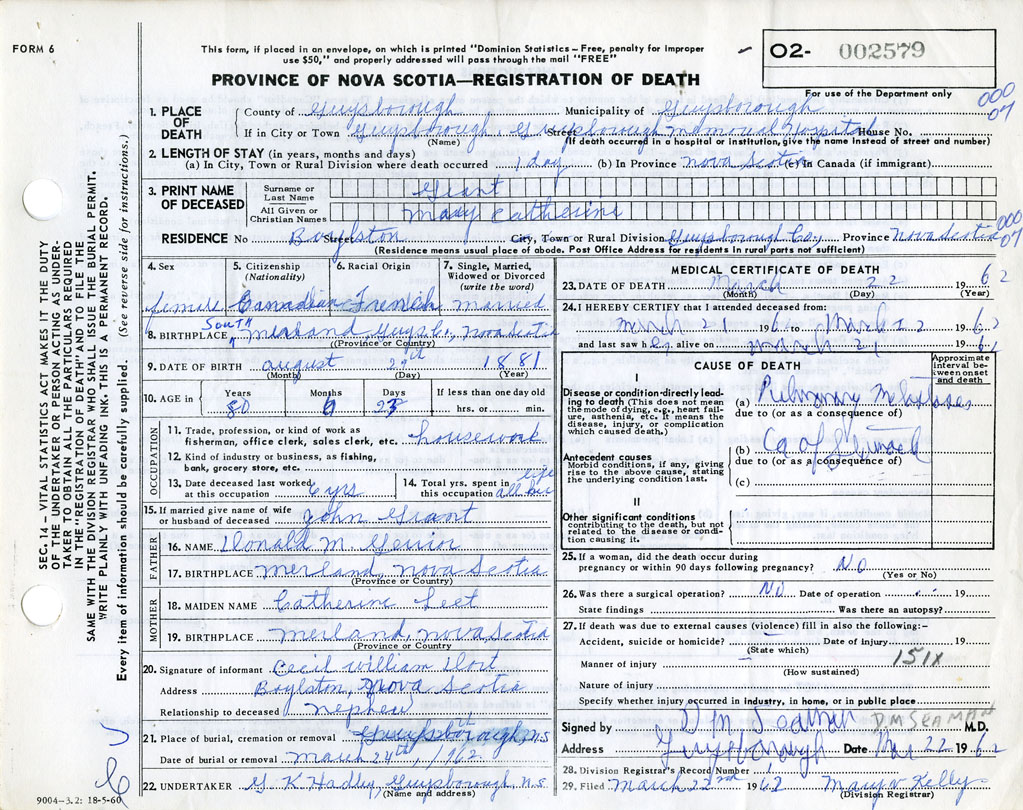 FORM 6
This form, if placed in an envelope, on which is printed "Dominion Statistics—Free, penalty for improper
use $50," and properly addressed will pass through the mail "FREE"
O2- 002579
PROVINCE OF NOVA SCOTIA—REGISTRATION OF DEATH
For use of the Department only
000
07
1. PLACE OF DEATH
County of Guysborough Municipality of Guysborough
If in City or Town Guysborough, Guysborough Memorial Hospital Street House No.
(Name) (If death occurred in a hospital or institution, give the name instead of street and number)
2. LENGTH OF STAY (in years, months and days)
(a) In City, Town or Rural Division where death occurred 1 day (b) In Province Nova Scotia (c) in Canada (if immigrant)
3. PRINT NAME OF DECEASED
Surname or Last Name Grant
All Given or Christian Names Mary Catherine
000
07
RESIDENCE No Boylston Street City, Town or Rural Division Guysborough Co., Province Nova Scotia
(Residence means usual place of abode. Post Office Address for residents in rural parts not sufficient)
SEC. 14 – VITAL STATISTICS ACT MAKES IT THE DUTY
OF THE UNDERTAKER OR PERSON ACTING AS UNDER-
TAKER TO OBTAIN ALL THE PARTICULARS REQUIRED
IN THE "REGISTRATION OF DEATH" AND TO FILE THE
SAME WITH THE DIVISION REGISTRAR WHO SHALL ISSUE THE BURIAL PERMIT.
WRITE PLAINLY WITH UNFADING INK. THIS IS A PERMANENT RECORD.
Every item of information should be carefully supplied. (See reverse side for instructions.)
4. Sex female
5. Citizenship (Nationality) Canadian
6. Racial Origin French
7. Single, Married, Widowed or Divorced (write the word) Married
8. BIRTHPLACE South Merland Guys Co., Nova Scotia
(Province or Country)
9. DATE OF BIRTH august 29th 1881
(Month) (Day) (Year)
10. AGE in Years 80 Months 6 Days 23 If less than one day old hrs. or min.
OCCUPATION
11. Trade, profession, or kind of work as
fisherman, office clerk, sales clerk, etc. housework
12. Kind of industry or business, as fishing,
bank, grocery store, etc.
13. Date deceased last worked at this occupation 6 yrs
14. Total yrs. spent in this occupation all her life
15. If married give name of wife
or husband of deceased John Grant
FATHER
16. NAME Donald M.
17. BIRTHPLACE Merland, Nova Scotia
(Province or Country)
MOTHER
18. MAIDEN NAME Catherine Leet
19. BIRTHPLACE Merland, Nova Scotia
(Province or Country)
20. Signature of informant Cecil William Dort
Address Boylston, Nova Scotia
Relationship to deceased nephew
21. Place of burial, cremation or removal Guysborough, N.S
Date of burial or removal March 24th, 1962
22. UNDERTAKER G. K Hadley, Guysborough N.S
(Name and address)
9004—3.2: 18-5-60
MEDICAL CERTIFICATE OF DEATH
23. DATE OF DEATH March 22 1962
(Month) (Day) (Year)
24. I HEREBY CERTIFY that I attended deceased from:
March 21 1962 to March 22 1962
and last saw her alive on march 21 1962
CAUSE OF DEATH
Approximate interval between onset and death
I
Disease or condition directly lead-
ing to death (This does not mean
the mode of dying, e.g., heart fail-
ure, asthenia, etc. It means the
disease, injury, or complication
which caused death.)
(a) Pulmonary Metastases
due to (or as a consequence of)
Antecedent causes
Morbid conditions, if any, giving
rise to the above cause, stating
the underlying condition last.
(b) Ca of Stomach
due to (or as a consequence of)
(c)
II
Other significant conditions
contributing to the death, but not
related to the disease or condi-
tion causing it.
25. If a woman, did the death occur during
pregnancy or within 90 days following pregnancy? NO
(Yes or No)
26. Was there a surgical operation? NO Date of operation 19
State findings Was there an autopsy?
27. If death was due to external causes (violence) fill in also the following:-
Accident, suicide or homicide? Date of injury 19
(State which)
151X
Manner of injury
(How sustained)
Nature of injury
Specify whether injury occurred in industry, in home, or in public place
Signed by D M Seaman D.M SEAMAN M.D.
Address Guysborough Date Mar 22 1962
28. Division Registrar's Record Number 1
29. Filed March 22nd 1962 Mary V Kelly
(Division Registrar)